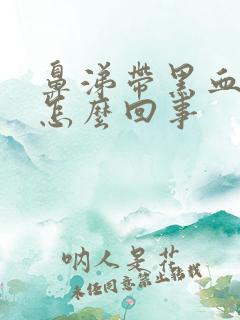 鼻涕带黑血
怎么回事
呐人是花
未经同意禁止转载